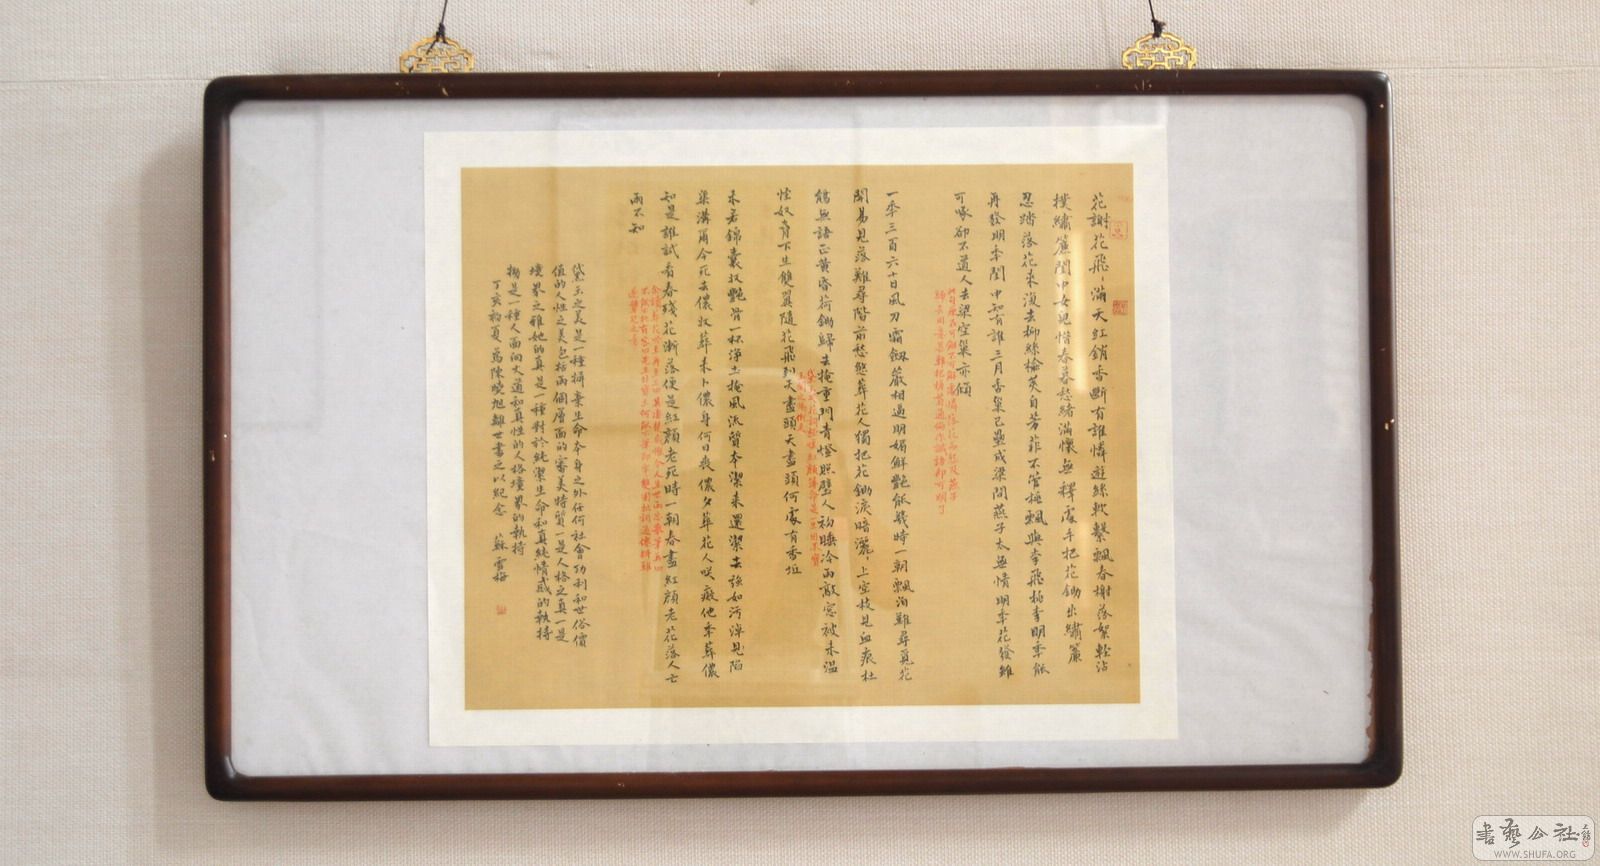 花謝花飛、滿天紅銷香斷有誰憐遊絲軟繫飄春榭落絮輕沾
撲繡簾閨中女兒惜春暮愁緒滿懷無釋處手把花鋤出繡簾
忍踏落花來復去柳絲榆莢自芳菲不管桃飄與李飛桃李明季能
再發明季閨中知有誰三月香巢已壘成梁間燕子太無情明季花發雖
可啄卻不道人去梁空巢亦傾
一季三百六十日風刀霜劔嚴相逼明媚鮮艷能幾時一朝飄泊難尋覓花
開易見落難尋階前愁煞葬花人獨把花鋤淚暗灑、上空枝見血痕杜
鵑無語正黃昏荷鋤歸去掩重門青燈照壁人初睡冷雨敲窓被未溫
怪奴肩下生雙翼隨花飛到天盡頭天盡頭何處有香丘
未若錦囊收艷骨一杯淨土掩風流質本潔來還潔去強如污淖見陷
渠溝爾今死去儂收葬未卜儂身何日喪儂夕葬花人咲癡他季葬儂
知是誰試看春殘花漸落便是紅顏老死時一朝春盡紅顏老花落人亡
兩不知
黛玉之美是一種摒棄生命本身之外任何社會功利和世俗價
值的人性之美包括兩個層面的審美特質一是人格之真一是
境界之雅她的真是一種對於純潔生命和真純情感的執持
她是一種人面向大道和真性的人格境界的執持
丁亥初夏為陳曉旭離世書之以紀念 蘇雪梅
書藝公社
WWW.SHUFA.ORG